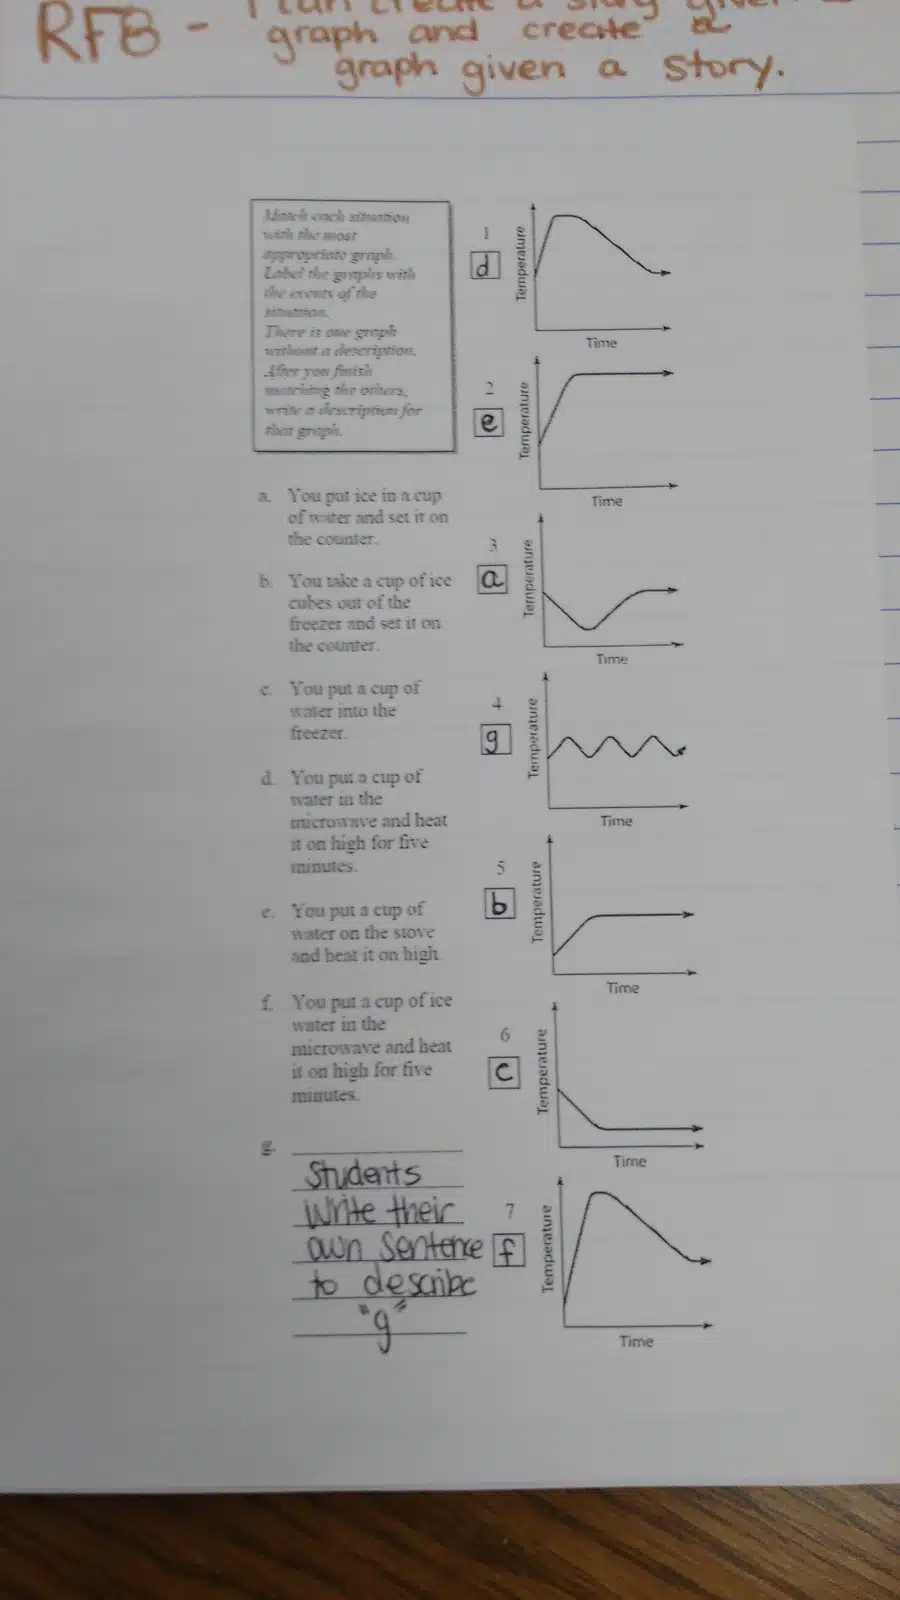 RFB - I can create a story given a
graph and create a
graph given a story.
Match each situation
with the most
appropriate graph.
Label the graphs with
the events of the
situation.
There is one graph
without a description.
After you finish
matching the others,
write a description for
that graph.
a. You put ice in a cup
of water and set it on
the counter.
b. You take a cup of ice
cubes out of the
freezer and set it on
the counter.
c. You put a cup of
water into the
freezer.
d. You put a cup of
water in the
microwave and heat
it on high for five
minutes.
e. You put a cup of
water on the stove
and heat it on high.
f. You put a cup of ice
water in the
microwave and heat
it on high for five
minutes.
g.
Students
Write their
own sentence
to describe
"g"
1
d
Temperature
Time
2
e
Temperature
Time
3
a
Temperature
Time
4
g
Temperature
Time
5
b
Temperature
Time
6
c
Temperature
Time
7
f
Temperature
Time